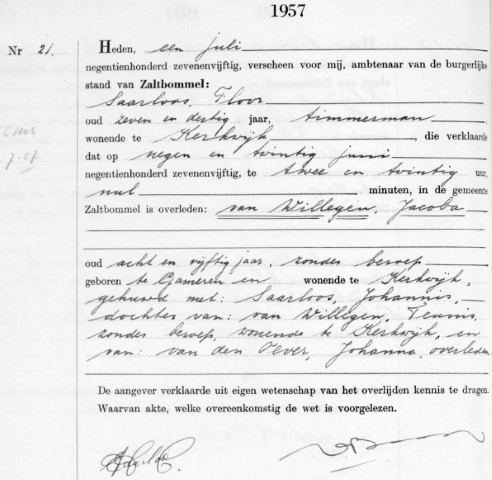 1957
Nr 21. Heden, een juli
negentienhonderd zevenenvijftig, verscheen voor mij, ambtenaar van de burgerlijke
stand van Zaltbommel:
Saarloos, Floor
oud zeven en dertig jaar, timmerman,
wonende te Kerkwijk, die verklaarde
dat op negen en twintig juni
negentienhonderd zevenenvijftig, te twee en twintig uur,
nul minuten, in de gemeente
Zaltbommel is overleden: van Willegen, Jacoba
oud acht en vijftig jaar, zonder beroep
geboren te Gameren en wonende te Kerkwijk,
gehuwd met: Saarloos, Johannis,
dochter van: van Willegen, Teunis,
zonder beroep, wonende te Kerkwijk, en
van: van den Oever, Johanna, overleden
De aangever verklaarde uit eigen wetenschap van het overlijden kennis te dragen.
Waarvan akte, welke overeenkomstig de wet is voorgelezen.